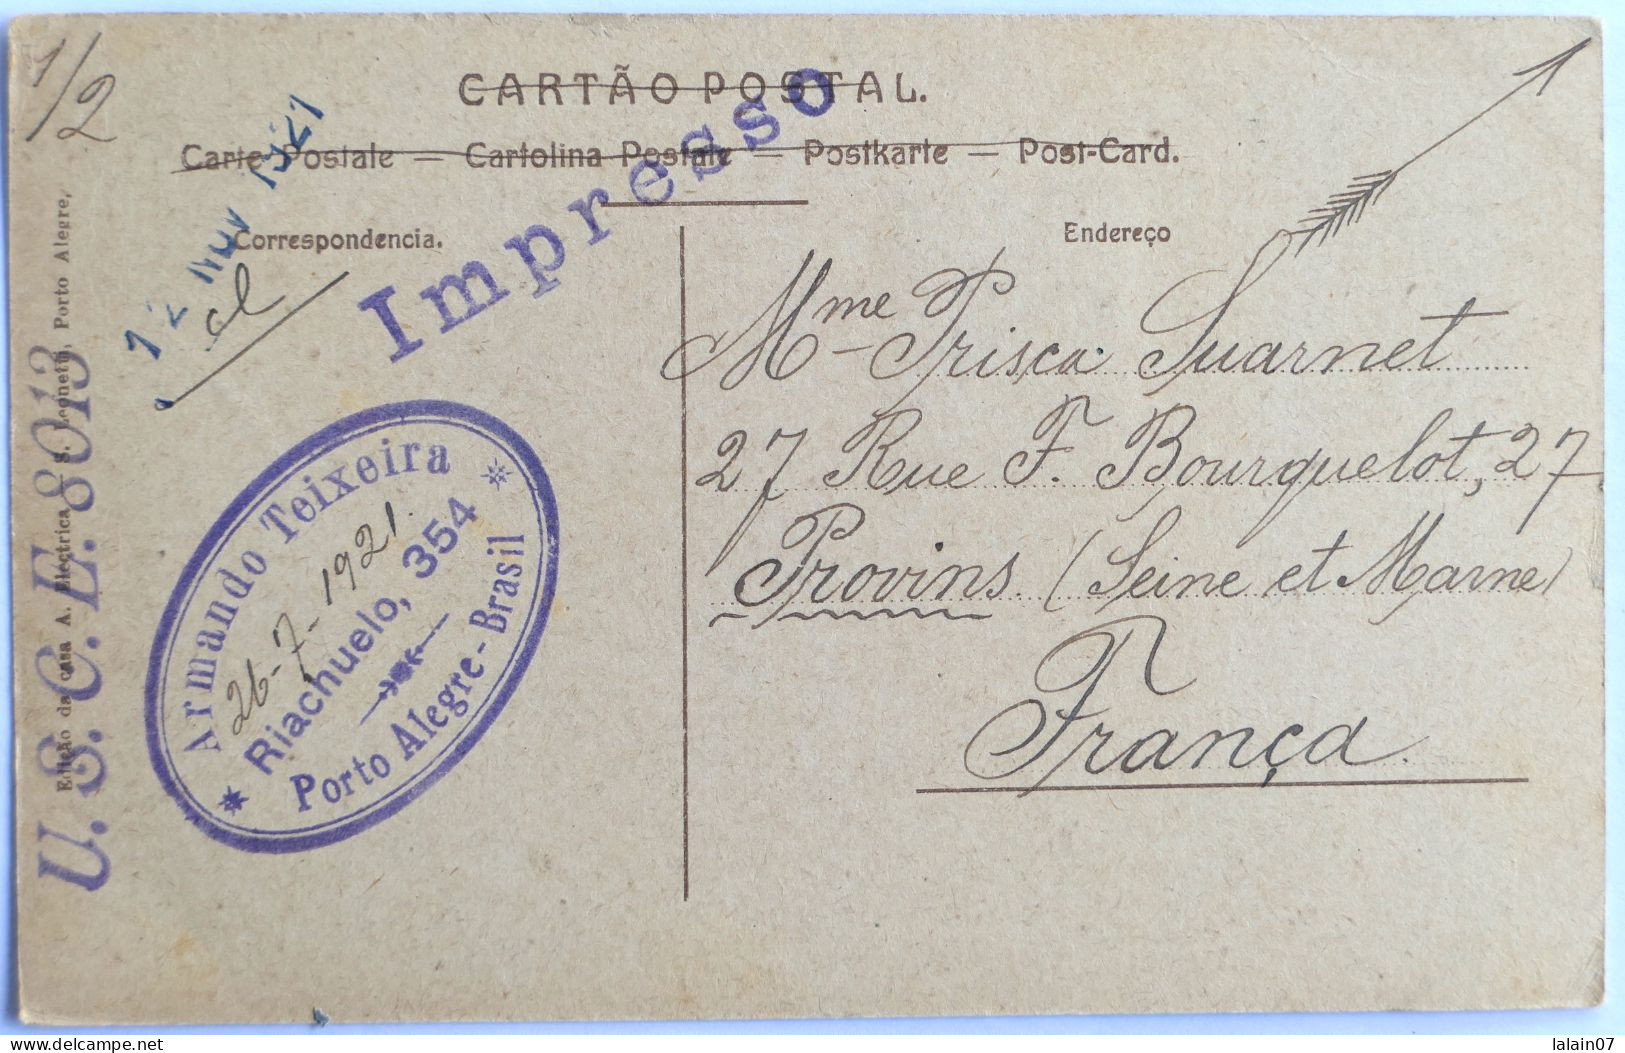 1/2
CARTÃO POSTAL.
Carte Postale — Cartolina Postale — Postkarte — Post-Card.
Impresso
Correspondencia.
Endereço
Mme Prisca Suarnet
27 Rue F. Bourquelot, 27
Provins. (Seine et Marne)
França.
Armando Teixeira
26-7-1921.
Riachuelo, 354
Porto Alegre-Brasil
U. S. C. E. 8013
Edição da casa A. Electrica S. Leonetti, Porto Alegre,
www.delcampe.net
lalain07